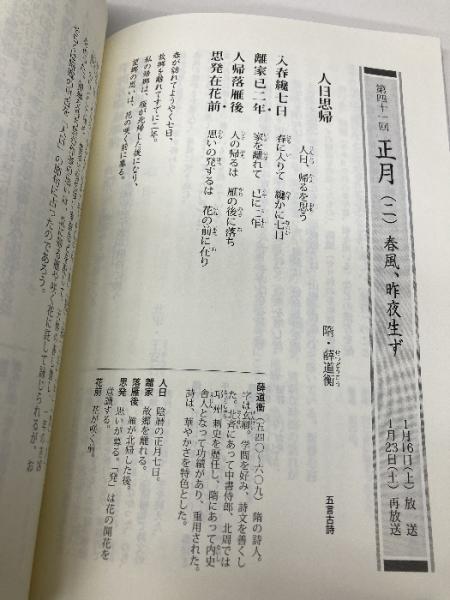 第四十一回 正月(二) 春風、昨夜生ず
1月16日(土)放送
1月23日(土)再放送
人日思帰
隋・薛道衡
せつどうこう
五言古詩
人日、帰るを思う
入春纔七日 春に入りて 纔かに七日
離家已二年 家を離れて 已に二年
人帰落雁後 人の帰るは 雁の後に落ち
思発在花前 思いの発するは 花の前に在り
春が訪れてようやく七日、
故郷を離れてすでに二年。
私の帰郷は、雁が北帰した後になり、
望郷の思いは、花の咲く前に募る。
薛道衡(五四〇〜六〇九) 隋の詩人。
字は玄卿。学問を好み、詩文を善くし
た。北斉にあって中書侍郎、北周では
邛州刺史を歴任し、隋にあって内史
舎人となって功績があり、重用された。
詩は、華やかさを特色とした。
人日 陰暦の正月七日。
離家 故郷を離れる。
落雁後 雁が北帰した後。
思発 思いが募る。「発」は花の開花を
点描する。
花前 花が咲く前。